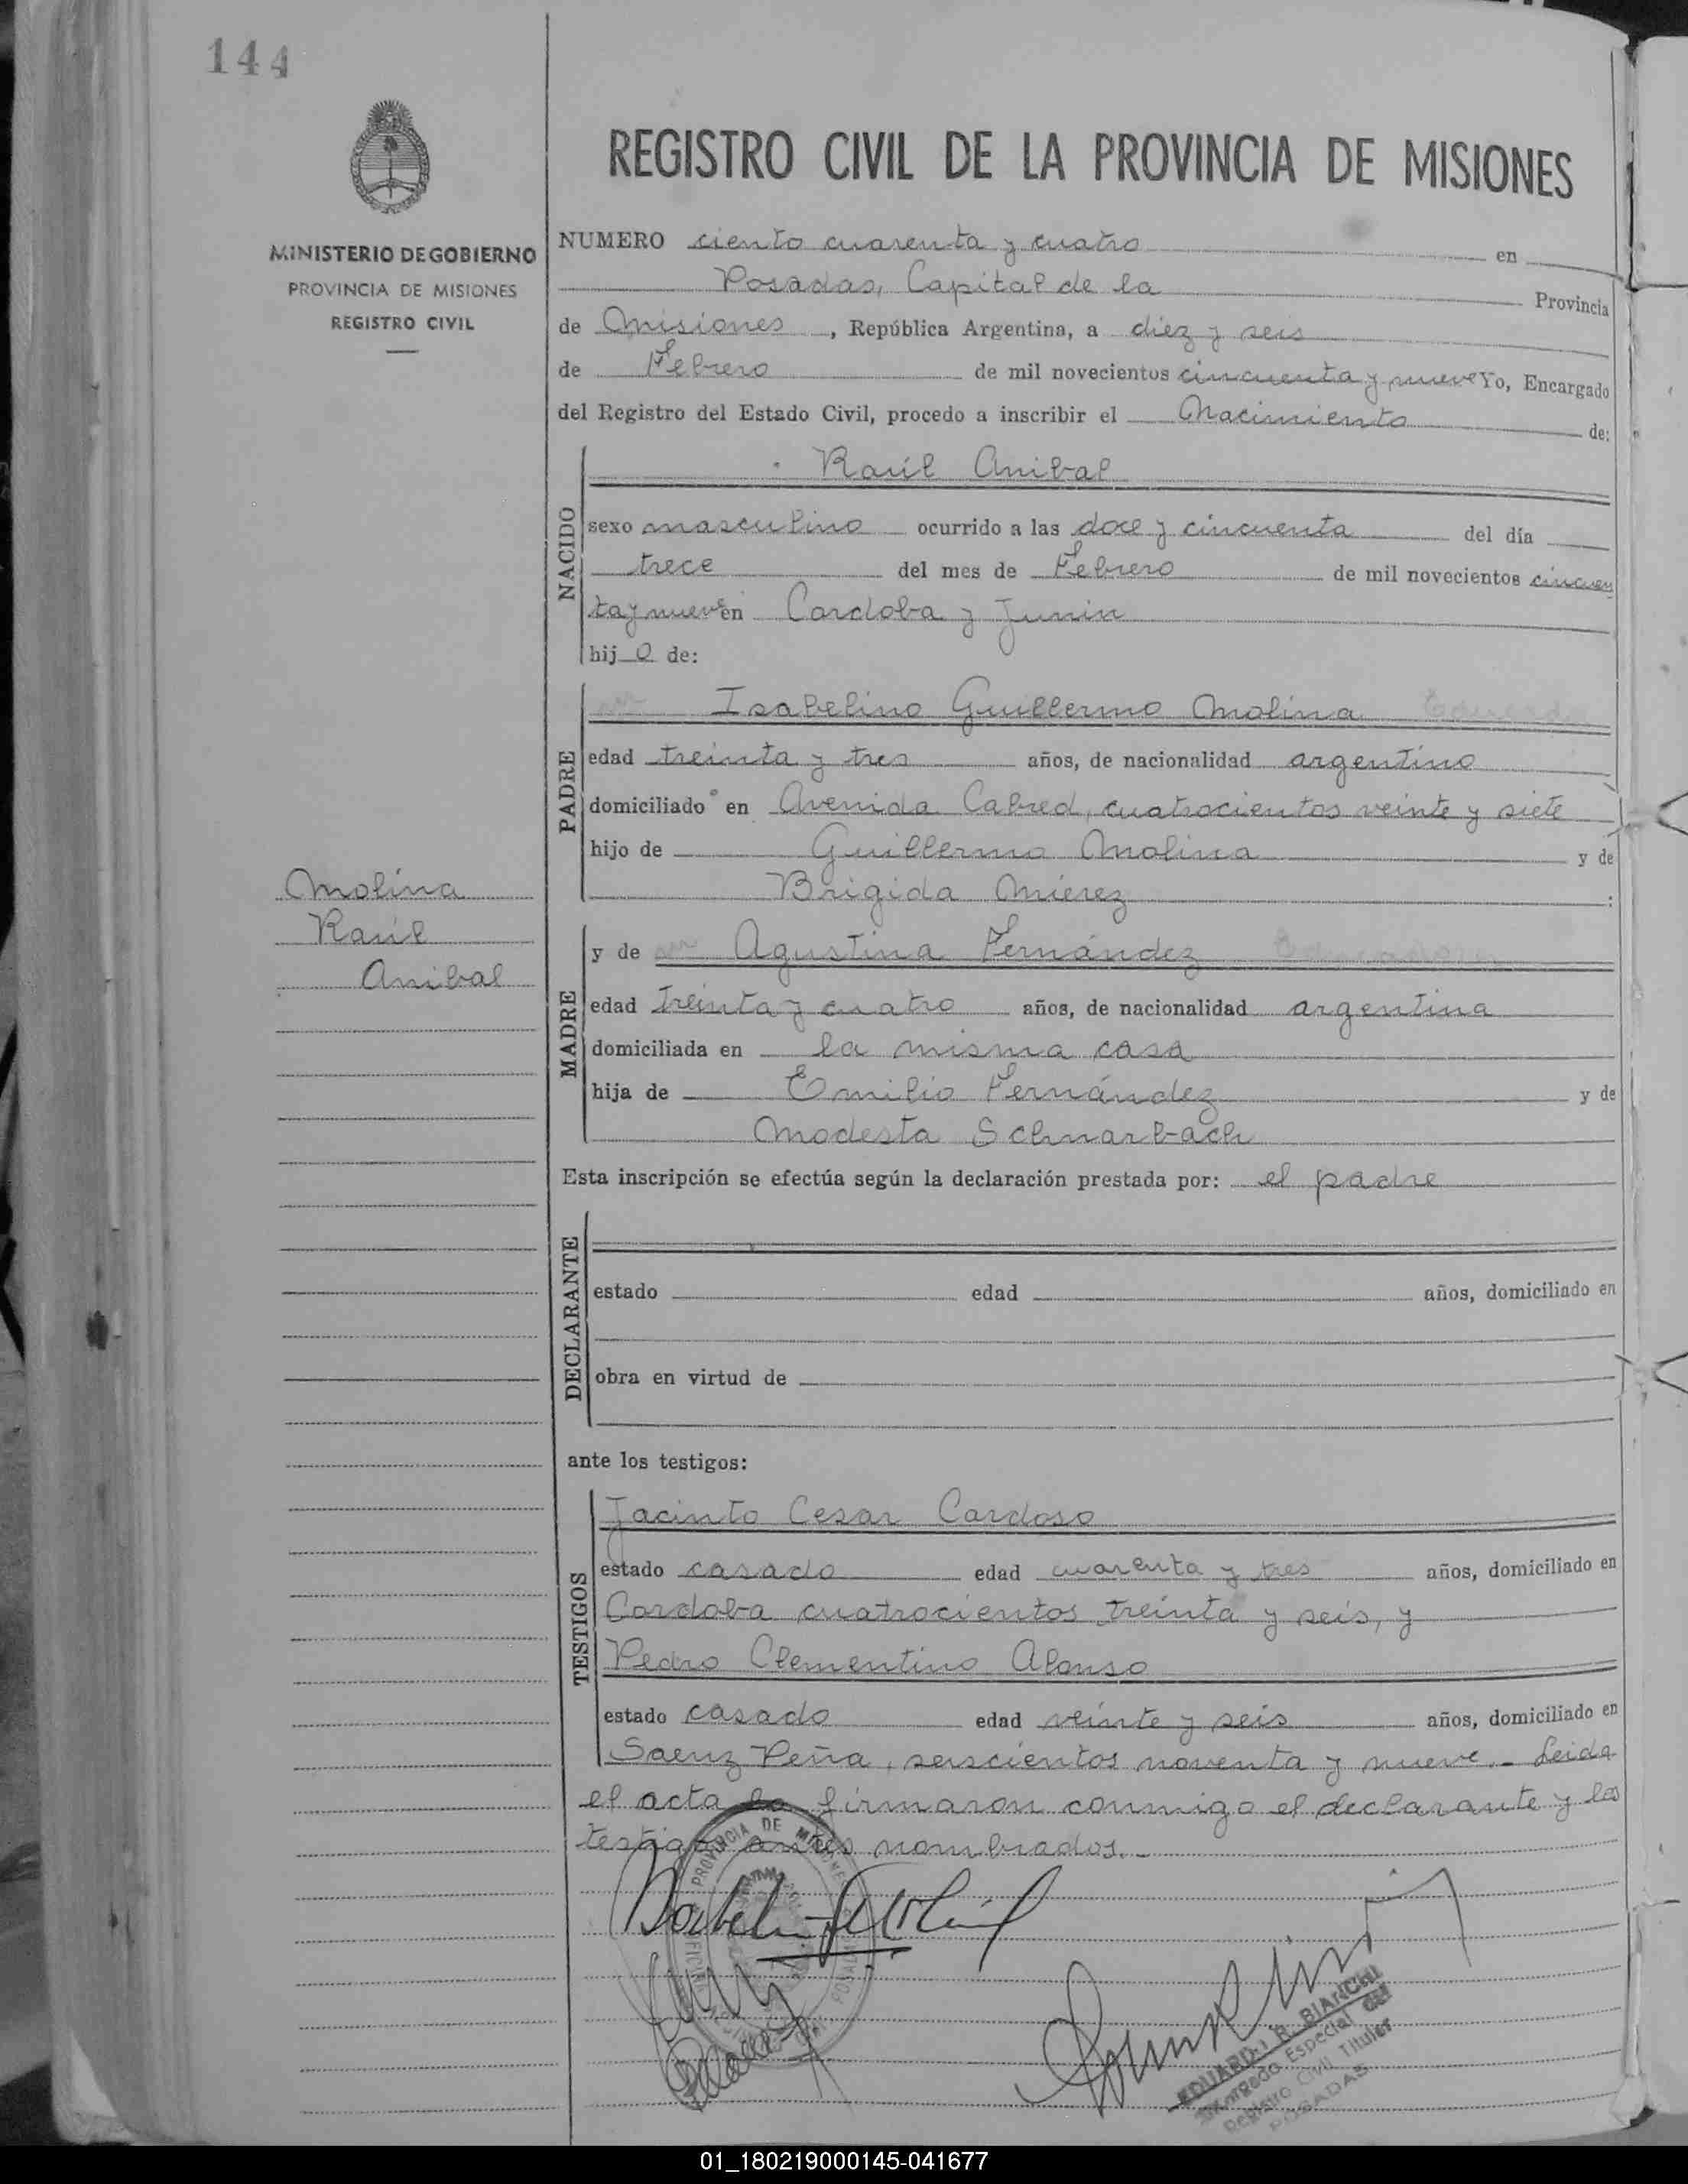 144
MINISTERIO DE GOBIERNO
PROVINCIA DE MISIONES
REGISTRO CIVIL
Molina
Raúl
Anibal
REGISTRO CIVIL DE LA PROVINCIA DE MISIONES
NUMERO ciento cuarenta y cuatro en
Posadas, Capital de la Provincia
de Misiones, República Argentina, a diez y seis
de Febrero de mil novecientos cincuenta y nueve Yo, Encargado
del Registro del Estado Civil, procedo a inscribir el Nacimiento de:
NACIDO
Raúl Anibal
sexo masculino ocurrido a las doce y cincuenta del día
trece del mes de Febrero de mil novecientos cincuen
ta y nueve en Cordoba y Junin
hijo de:
PADRE
Isabelino Guillermo Molina
edad treinta y tres años, de nacionalidad argentino
domiciliado en Avenida Cabred, cuatrocientos veinte y siete
hijo de Guillermo Molina y de
Brigida Mierez :
MADRE
y de Agustina Fernández
edad treinta y cuatro años, de nacionalidad argentina
domiciliada en la misma casa
hija de Emilio Fernández y de
Modesta Schnarbach
Esta inscripción se efectúa según la declaración prestada por: el padre
DECLARANTE
estado edad años, domiciliado en
obra en virtud de
ante los testigos:
TESTIGOS
Jacinto Cesar Cardoso
estado casado edad cuarenta y tres años, domiciliado en
Cordoba cuatrocientos treinta y seis, y
Pedro Clementino Alonso
estado casado edad veinte y seis años, domiciliado en
Saenz Peña, seiscientos noventa y nueve.- Leida
el acta la firmaron conmigo el declarante y los
testigos antes nombrados.-
PROVINCIA DE MISIONES
EDUARDO R. BIANCHI
Encargado Especial del
Registro Civil Titular
POSADAS
01_180219000145-041677